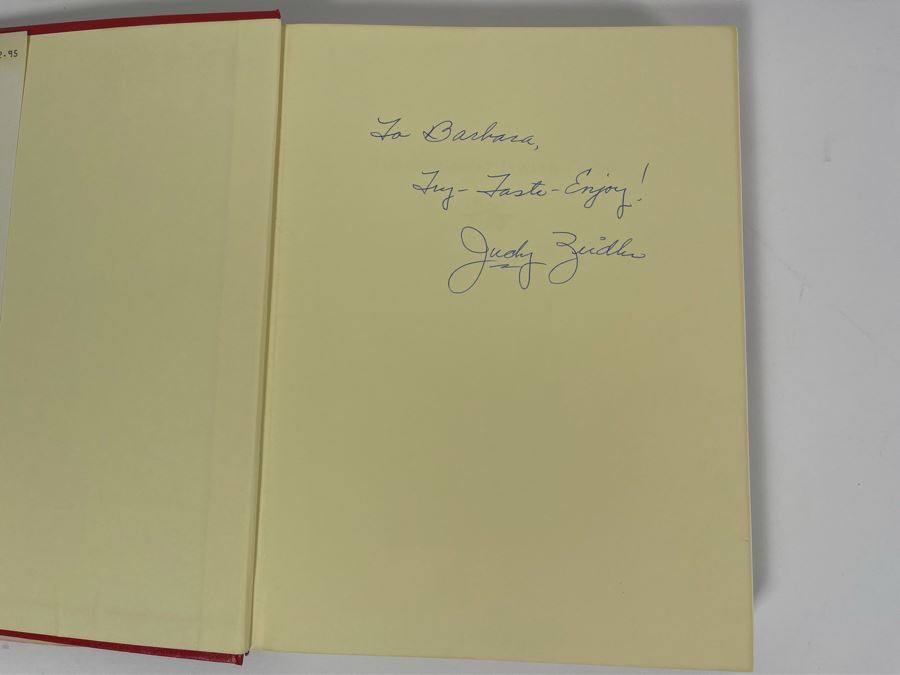 To Barbara,
Try - Taste - Enjoy!
Judy Zeidler
2.95